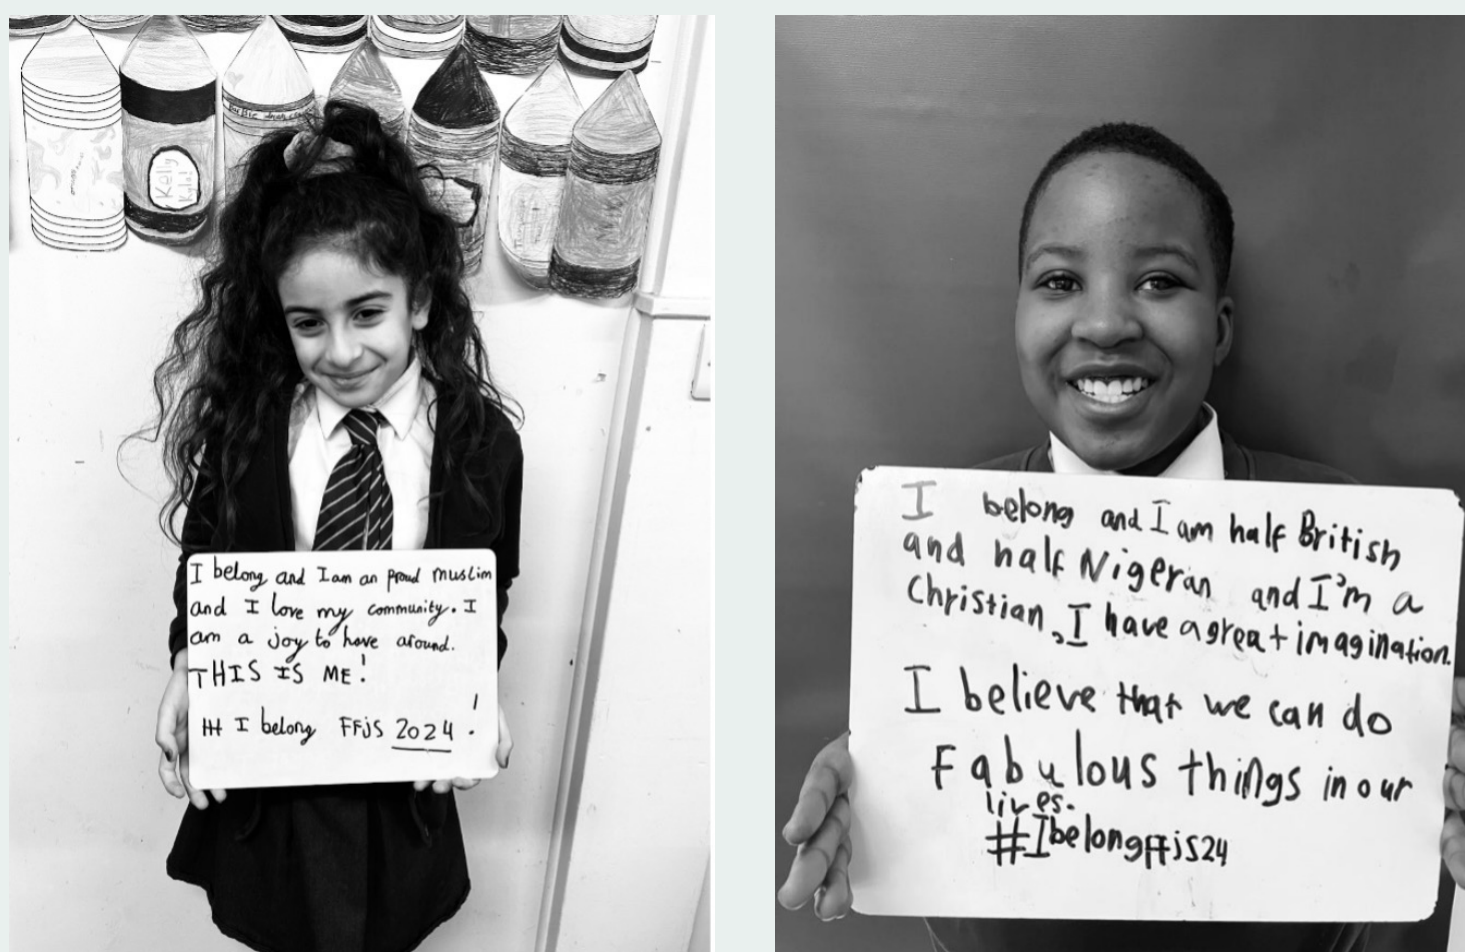 Kelly
I belong and I am an proud muslim
and I love my community. I
am a joy to have around.
THIS IS ME!
# I belong FFjS 2024!
I belong and I am half British
and half Nigeran and I'm a
Christian, I have a great imagination.
I believe that we can do
Fabulous things in our
lives.
#IbelongFFjS24